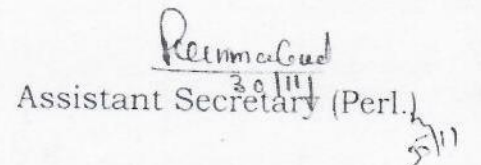 30/11
Assistant Secretary (Perl.)
30/11